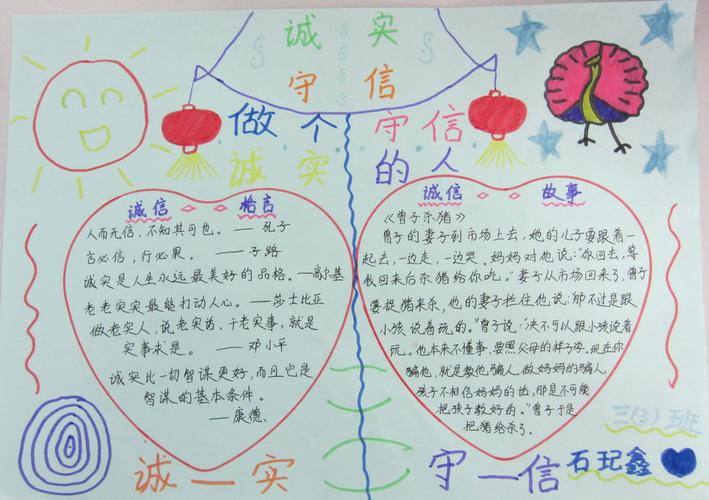 诚 实
守 信
做个 守信
诚实 的人
诚信 格言
人而无信，不知其可也。——孔子
言必信，行必果。——子路
诚实是人生永远最美好的品格。——高尔基
老老实实最能打动人心。——莎士比亚
做老实人，说老实话，干老实事，就是
实事求是。——邓小平
诚实比一切智谋更好，而且它是
智谋的基本条件。
——康德、
诚信 故事
《曾子杀猪》
曾子的妻子到市场上去，她的儿子要跟着一
起去，一边走，一边哭。妈妈对他说：“你回去，等
我回来后杀猪给你吃。”妻子从市场回来了，曾子
要捉猪来杀，他的妻子拦住他说：“那不过是跟
小孩说着玩的。”曾子说：“决不可以跟小孩说着
玩。他本来不懂事，要照父母的样子学。现在你
骗他，就是教他骗人。做妈妈的骗人，
孩子不相信妈妈的话，那是不可能
把孩子教好的。”曾子于是
把猪给杀了.
三(3)班
诚一实 守一信 石玘鑫